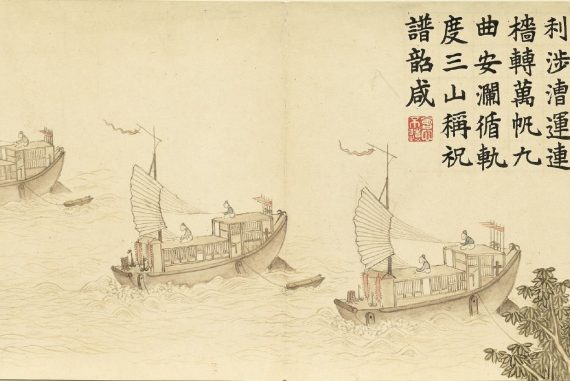 利涉漕運連
檣轉萬帆九
曲安瀾循軌
度三山稱祝
譜韶咸